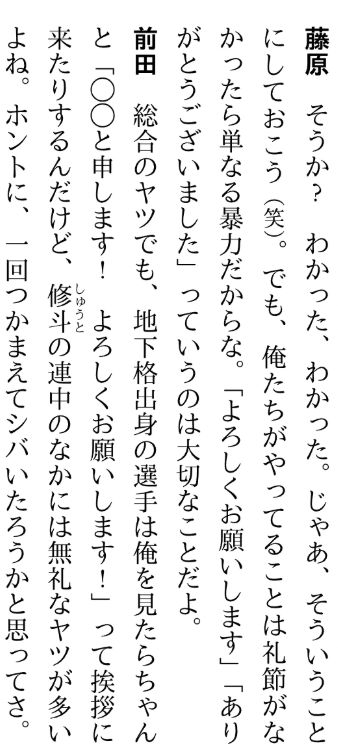 藤原　そうか？　わかった、わかった。じゃあ、そういうこと
にしておこう（笑）。でも、俺たちがやってることは礼節がな
かったら単なる暴力だからな。「よろしくお願いします」「あり
がとうございました」っていうのは大切なことだよ。
前田　総合のヤツでも、地下格出身の選手は俺を見たらちゃん
と「〇〇と申します！　よろしくお願いします！」って挨拶に
来たりするんだけど、修斗しゅうとの連中のなかには無礼なヤツが多い
よね。ホントに、一回つかまえてシバいたろうかと思ってさ。